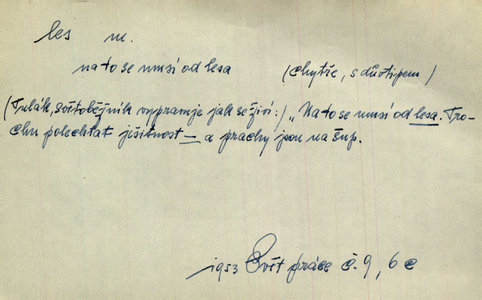 les m.
na to se musí od lesa (chytře, s důvtipem)
(Tulák, světoběžník vypravuje jak se živí:) „Na to se musí od lesa. Tro-
chu polechtat ješitnost – a prachy jsou na šup.
1953 Svět práce č. 9, 6 c